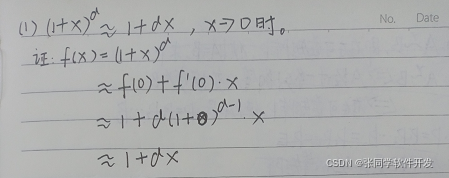 (1) (1+x)^α ≈ 1+αx , x→0时。
No. Date
证: f(x)=(1+x)^α
≈ f(0)+f'(0)·x
≈ 1+α(1+0)^α-1·x
≈ 1+αx
CSDN @张同学软件开发